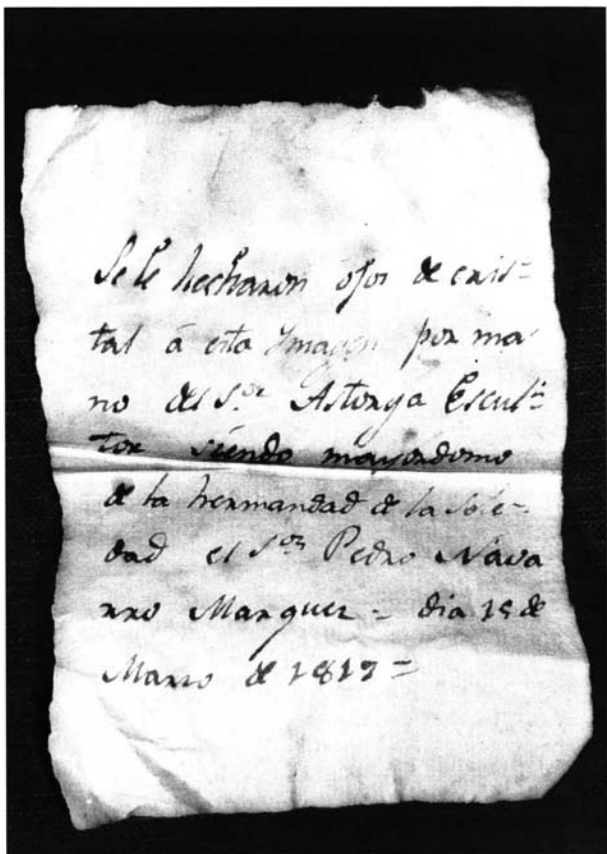 Se le hecharon ojos de cris=
tal á esta Ymagen por ma
no del S.or Astorga Escul=
tor siendo mayordomo
de la hermandad de la Sole=
dad el S.or Pedro Nava
rro Marquez = dia 15 de
Marzo de 1817=